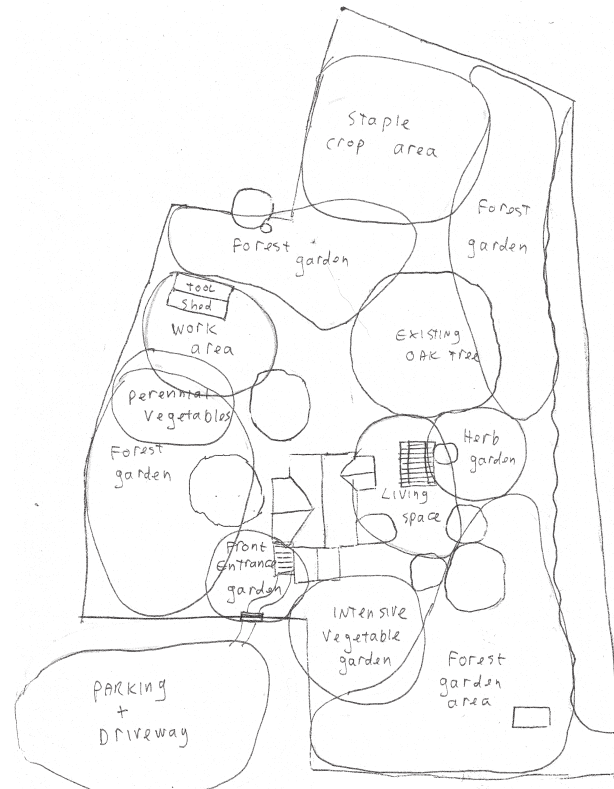 Staple
crop area
Forest
garden
Forest
garden
TOOL
Shed
work
area
EXISTING
OAK TREE
Perennial
Vegetables
Forest
garden
Herb
garden
Living
space
Front
Entrance
garden
INTENSIVE
Vegetable
garden
Forest
garden
area
PARKING
+
DRIVEWAY